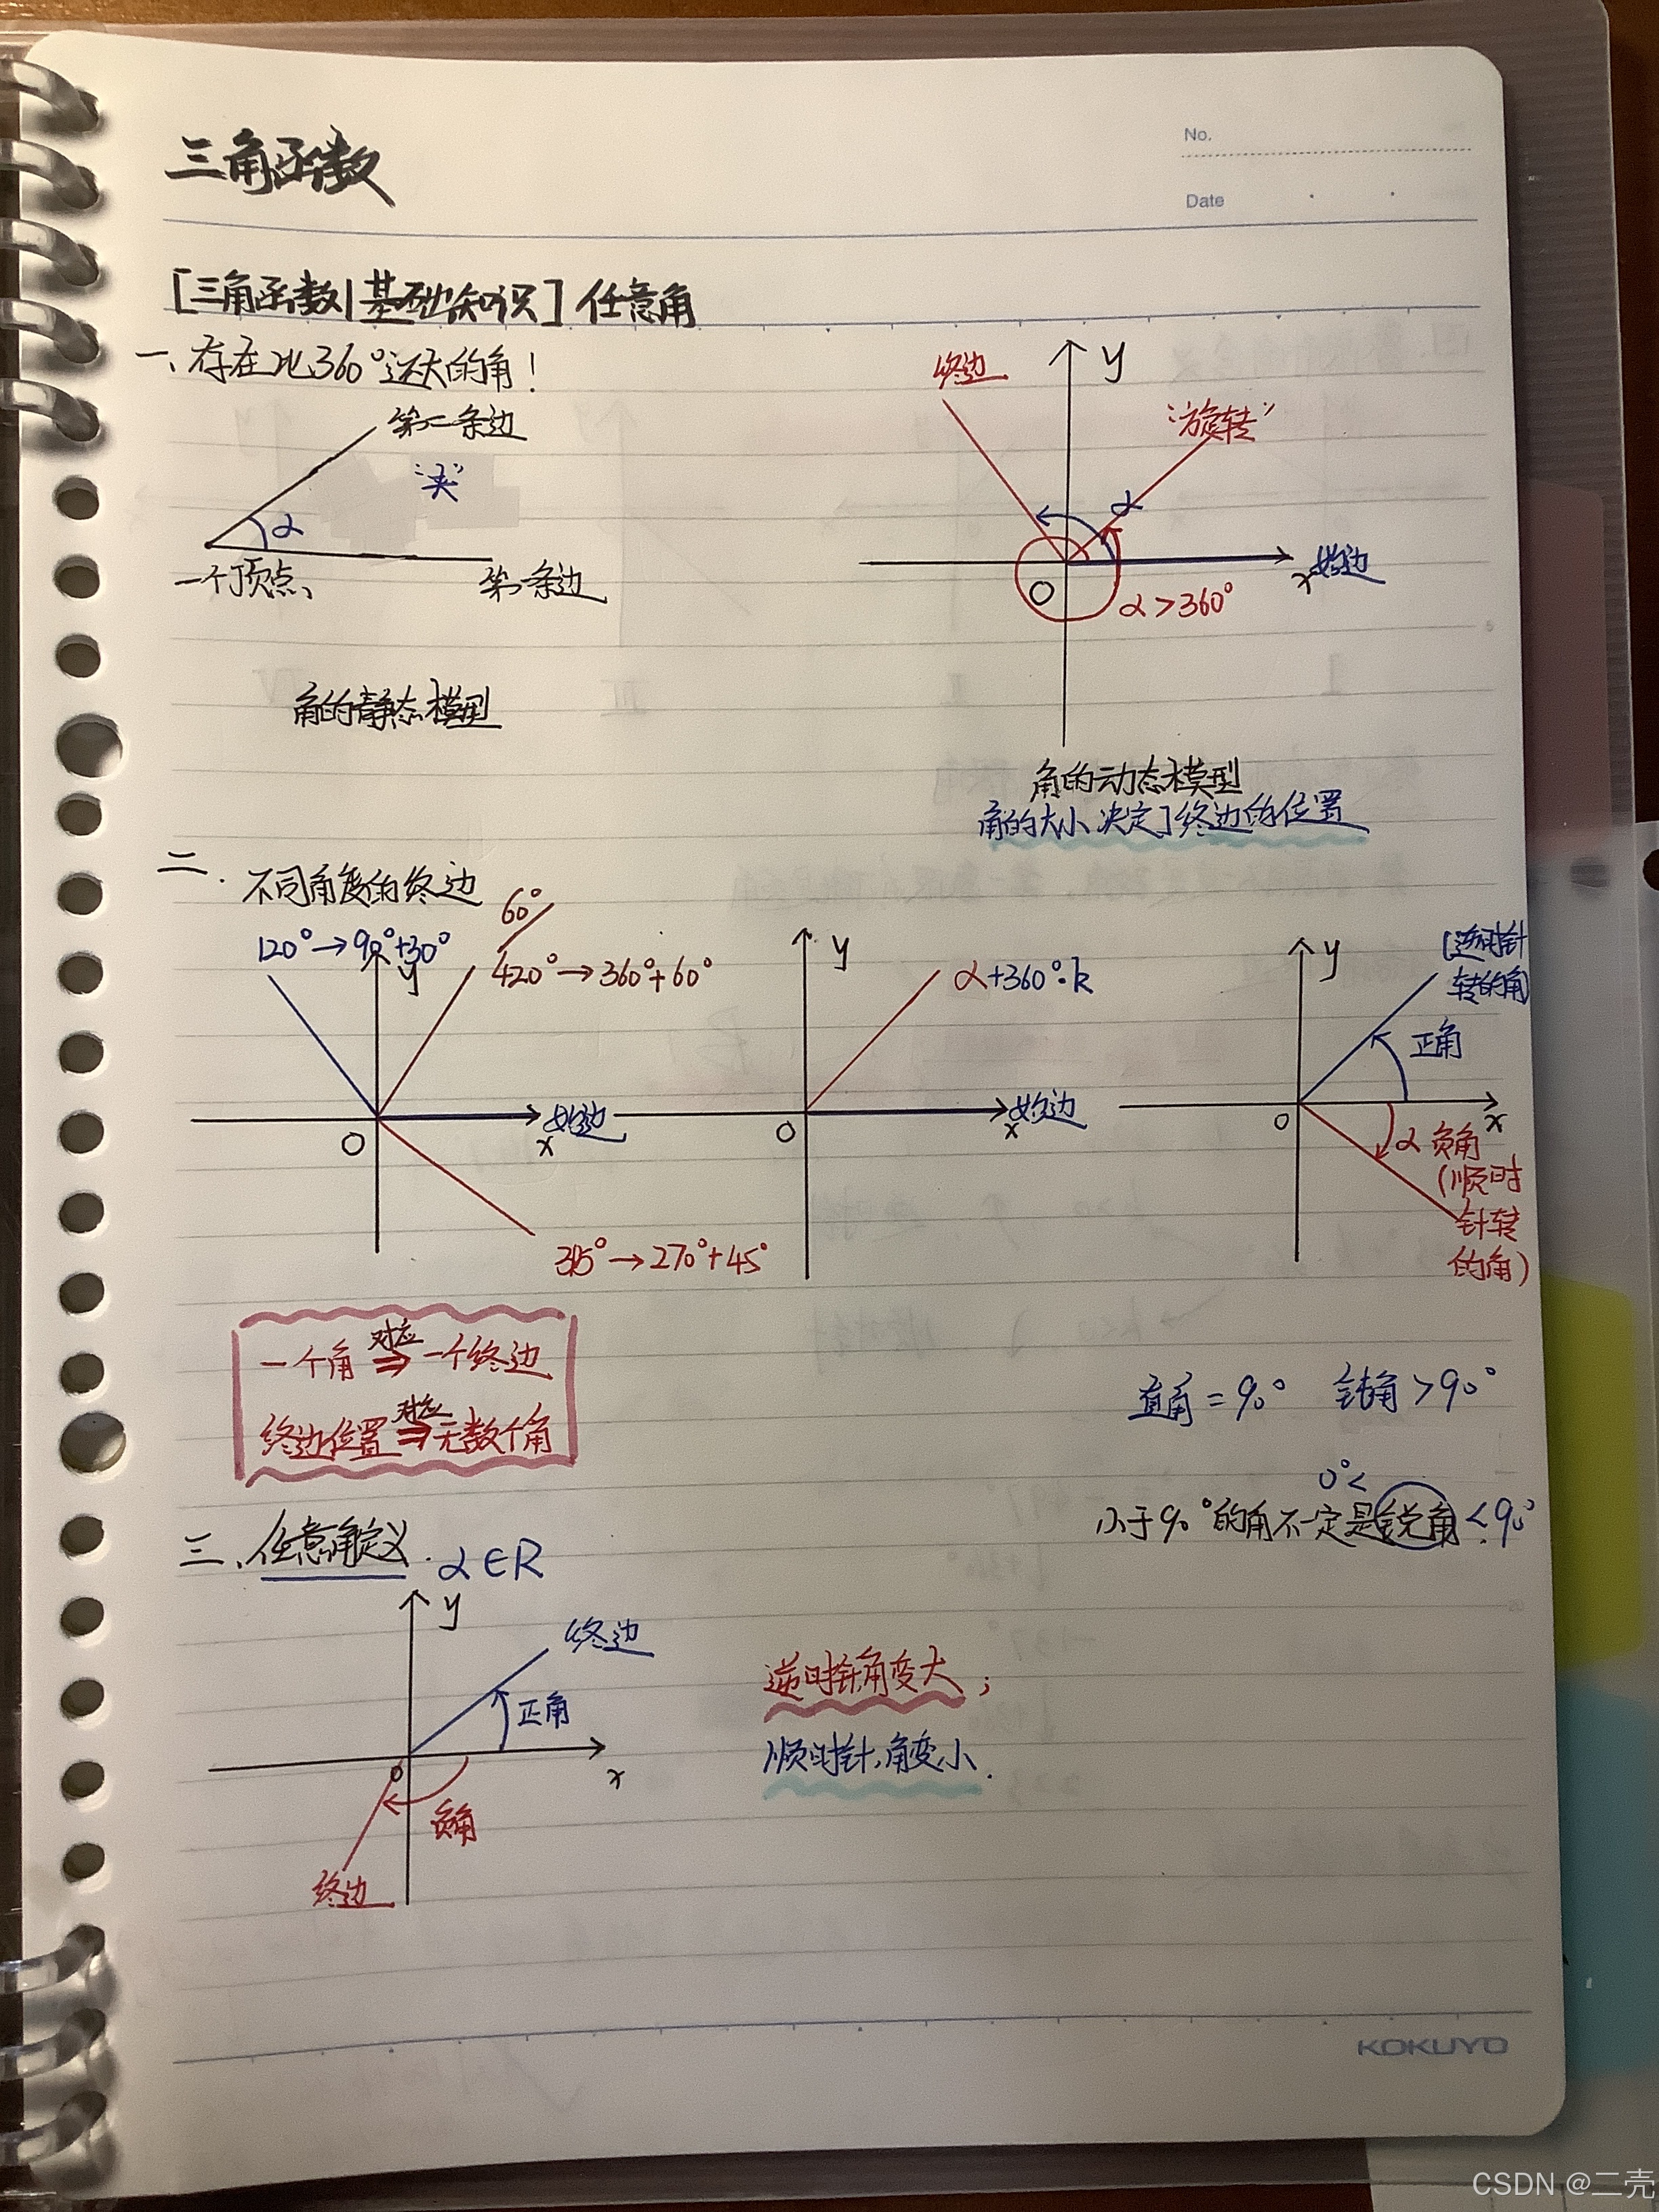 三角函数
No.
Date
[三角函数|基础知识] 任意角
一、存在比360°还大的角！
第二条边
“夹”
α
一个顶点
第一条边
角的静态模型
终边
y
“旋转”
α
O
x
始边
α>360°
角的动态模型
角的大小决定了终边的位置
二. 不同角度的终边
60°
120°→90°+30°
y
420°→360°+60°
始边
O
x
315°→270°+45°
y
α+360°·k
始边
O
x
y
(逆时针
转的角
正角
O
x
α 负角
(顺时
针转
的角)
一个角 对应⇒ 一个终边
终边位置 对应⇒ 无数个角
直角=90° 钝角>90°
0°<
小于90°的角不一定是锐角<90°
三、任意角定义. α∈R
y
终边
正角
O
x
负角
终边
逆时针,角变大；
顺时针,角变小.
KOKUYO
CSDN @二壳